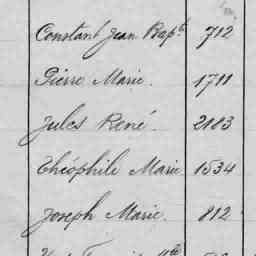 Constant Jean Bapte 712
Pierre Marie. 1711
Jules René. 2183
Théophile Marie 1534
Joseph Marie. 812